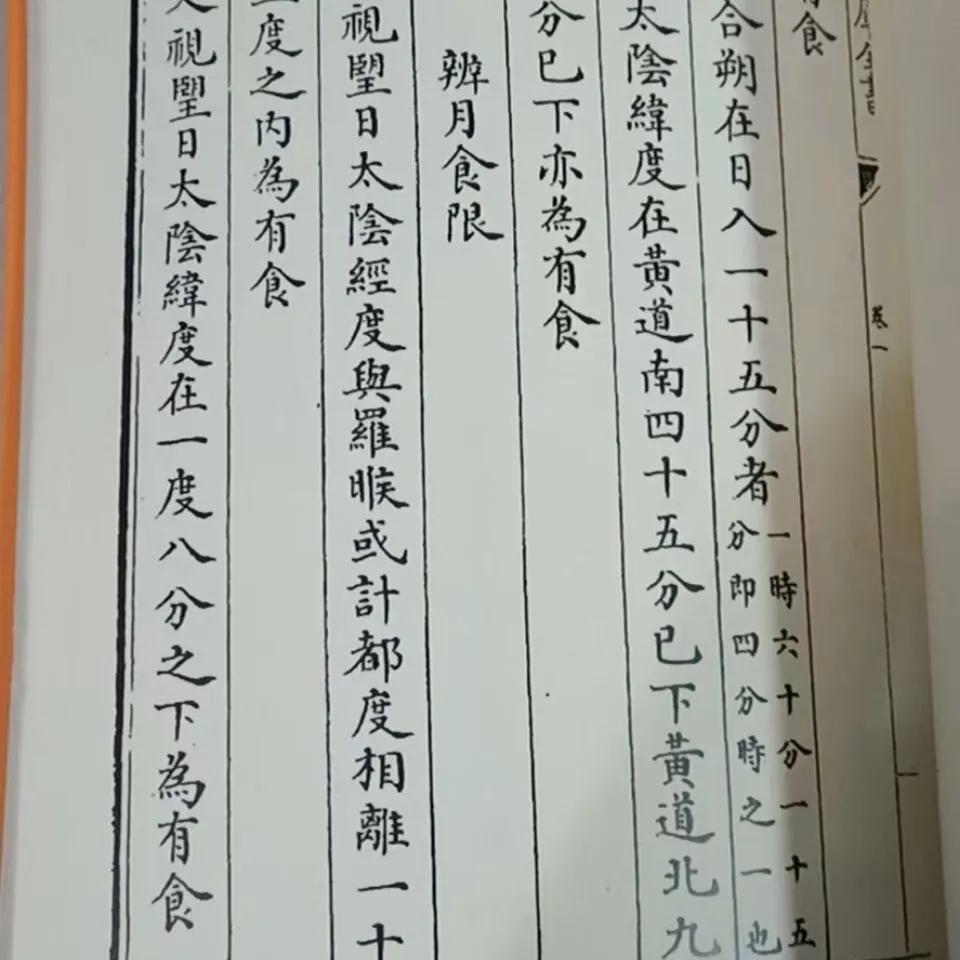 全書
卷一
食
合朔在日入一十五分者
一時六十分一十五
分即四分時之一也
太陰緯度在黃道南四十五分已下黃道北九
分已下亦為有食
辨月食限
視朢日太陰經度與羅㬋或計都度相離一十
度之内為有食
視朢日太陰緯度在一度八分之下為有食